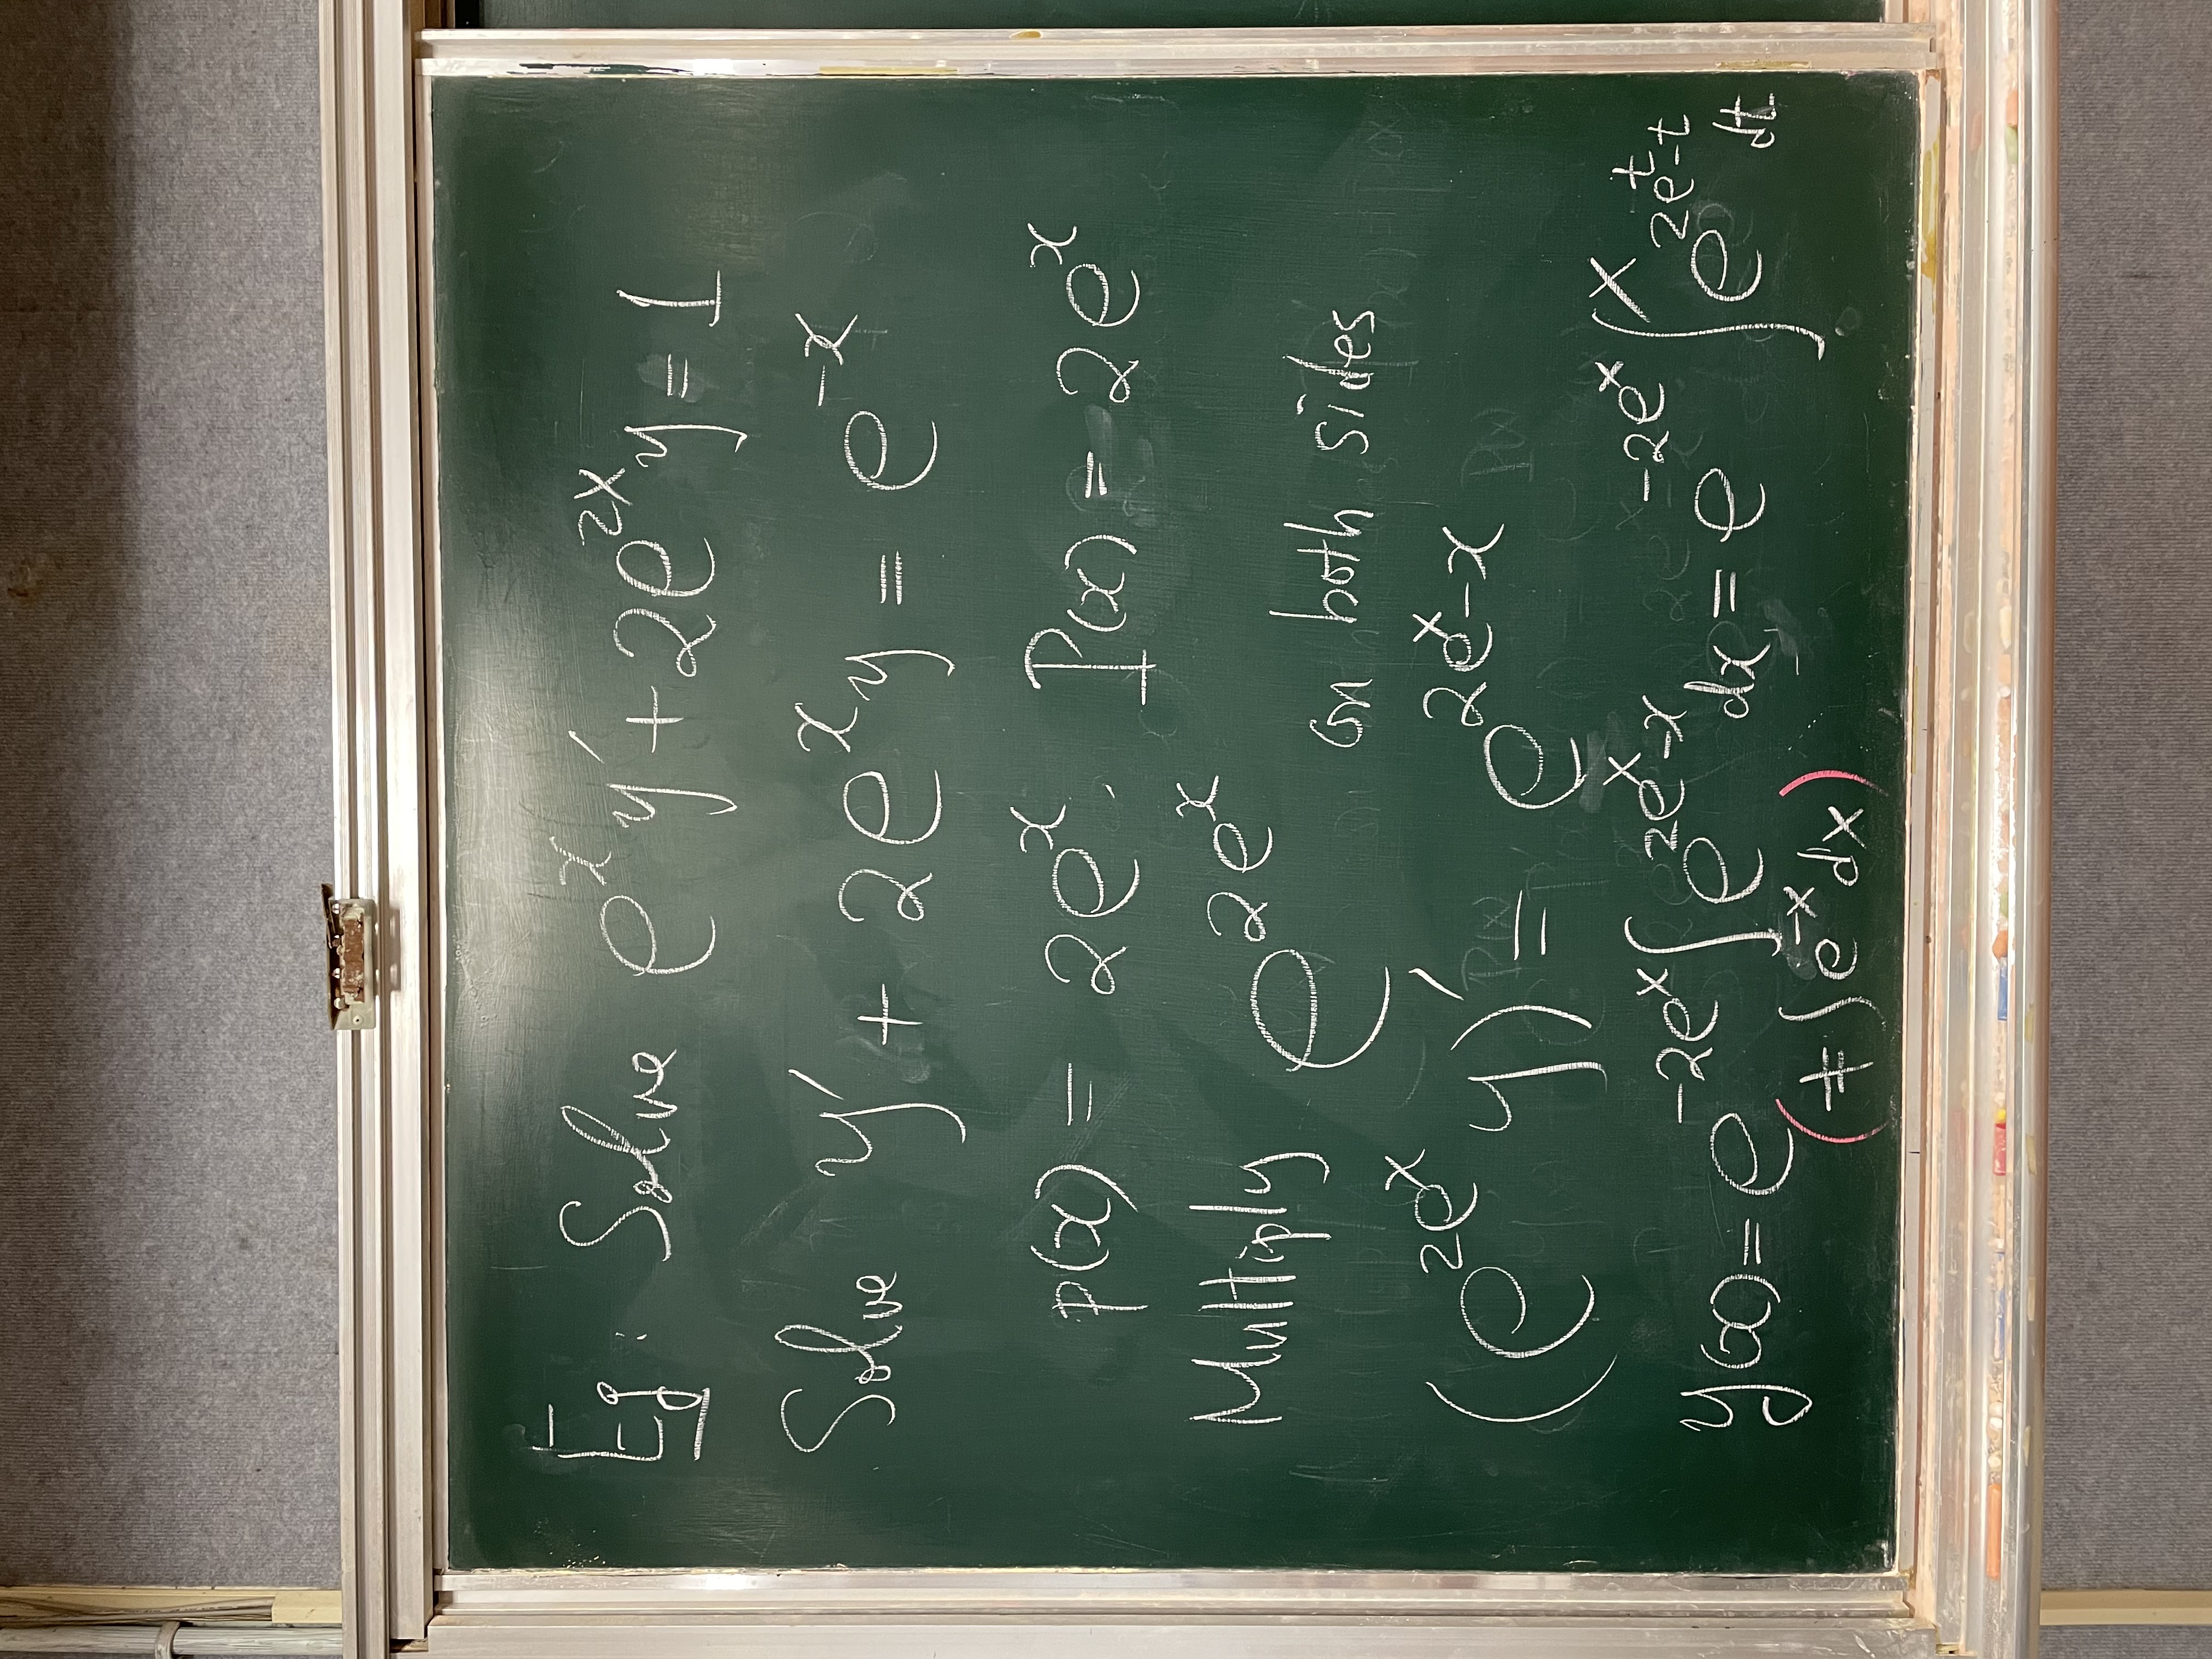 Eg. Solve e^x y' + 2e^{2x} y = 1
Solve y' + 2e^x y = e^{-x}
p(x) = 2e^x. P(x) = 2e^x
Multiply e^{2e^x} on both sides
(e^{2e^x} y)' = e^{2e^x - x}
y(x) = e^{-2e^x} ∫ e^{2e^x - x} dx = e^{-2e^x} ∫^x e^{2e^t - t} dt
(≠ ∫ e^{-x} dx)